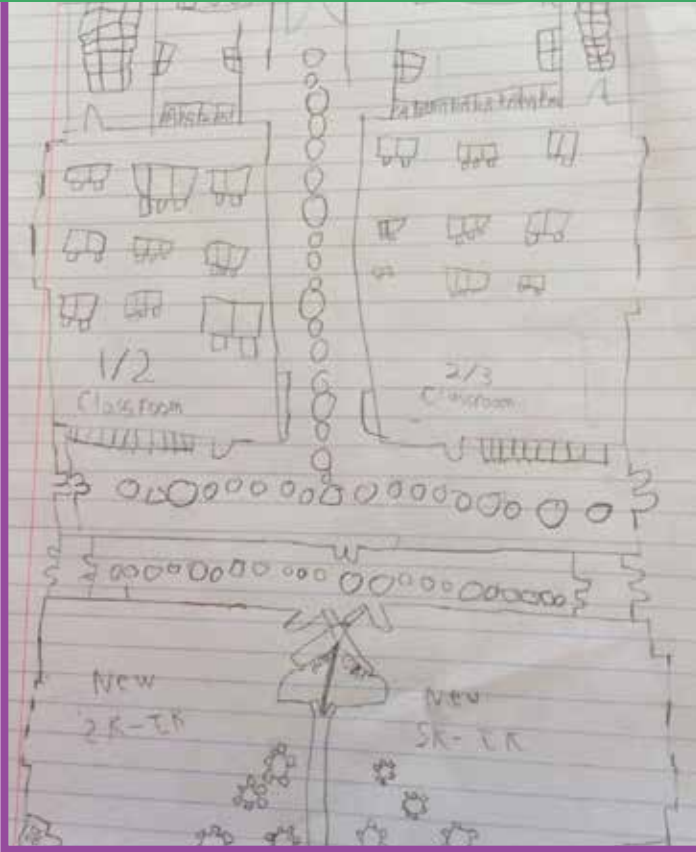 1/2
Classroom
2/3
Classroom
New
New
SK-EK